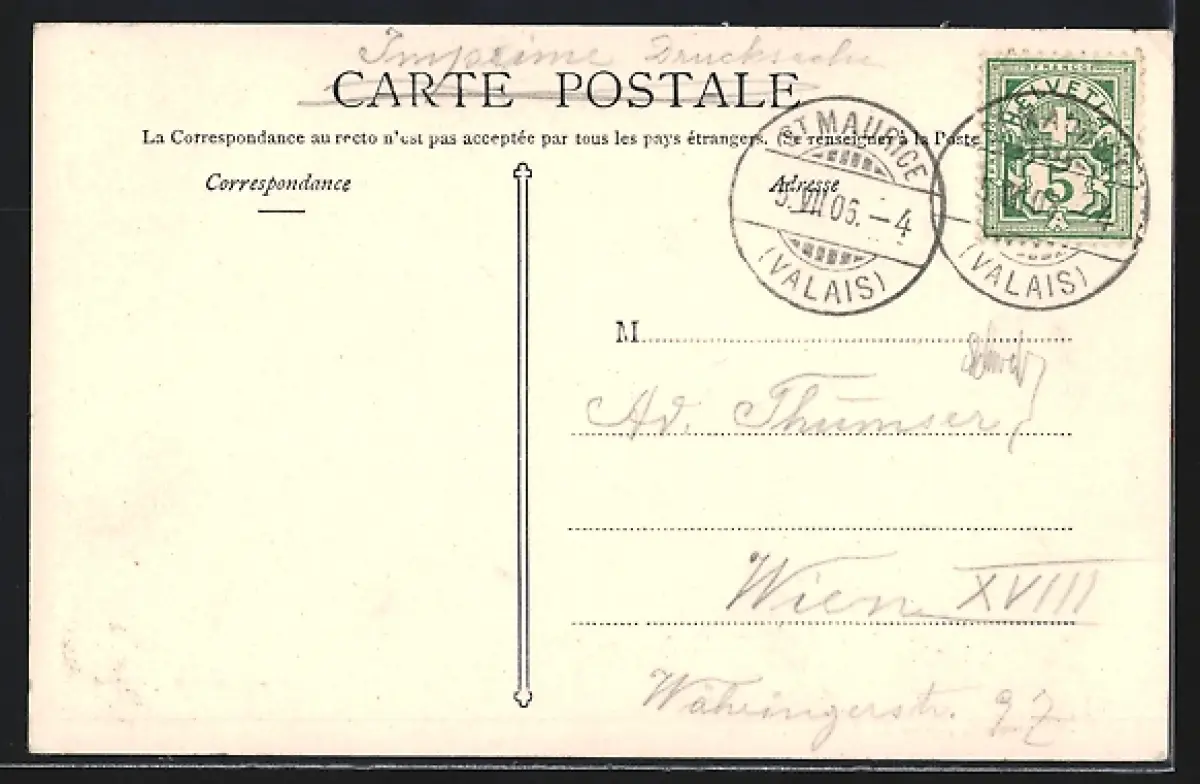 Imprime Drucksache
CARTE POSTALE
La Correspondance au recto n'est pas acceptée par tous les pays étrangers. (Se renseigner à la Poste
Correspondance
Adresse
ST MAURICE
5.VII.06.–4
(VALAIS)
FRANCO
HELVETIA
5
(VALAIS)
M
Ad. Thumser
Wien XVIII
Währingerstr. 97